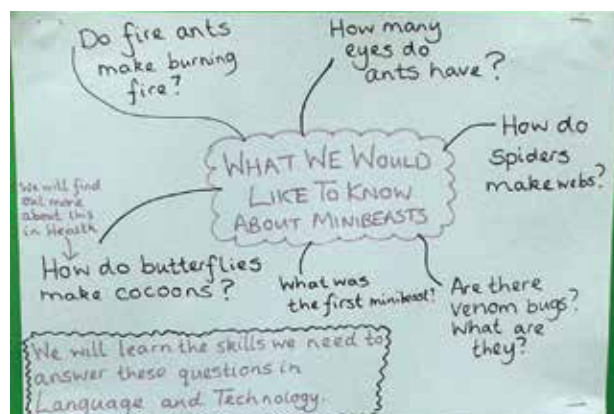 Do fire ants
make burning
fire?
How many
eyes do
ants have?
WHAT WE WOULD
LIKE TO KNOW
ABOUT MINIBEASTS
How do
Spiders
make webs?
We will find
out more
about this
in Health
How do butterflies
make cocoons?
What was
the first minibeast?
Are there
venom bugs?
What are
they?
We will learn the skills we need to
answer these questions in
Language and Technology.